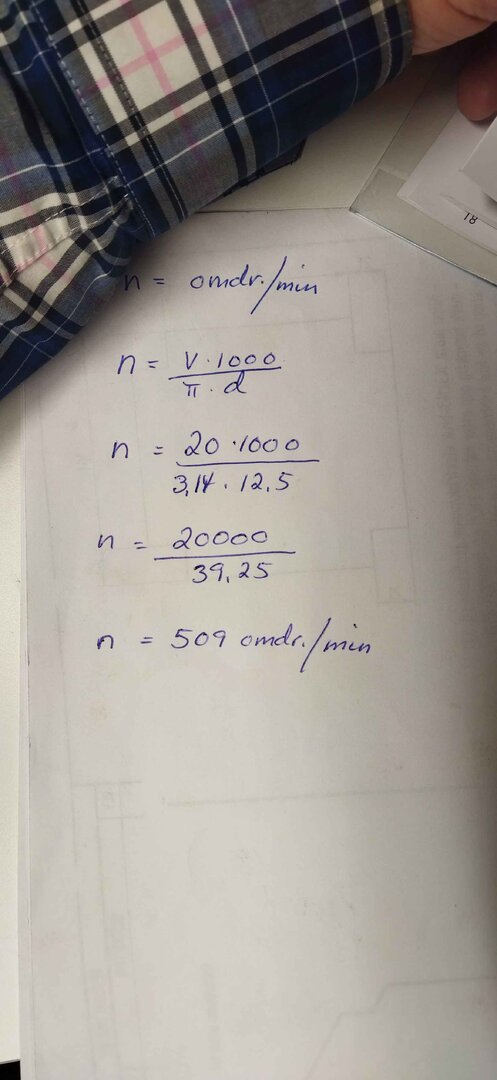 n = omdr./min
n = V · 1000 / π · d
n = 20 · 1000 / 3,14 · 12,5
n = 20000 / 39,25
n = 509 omdr./min